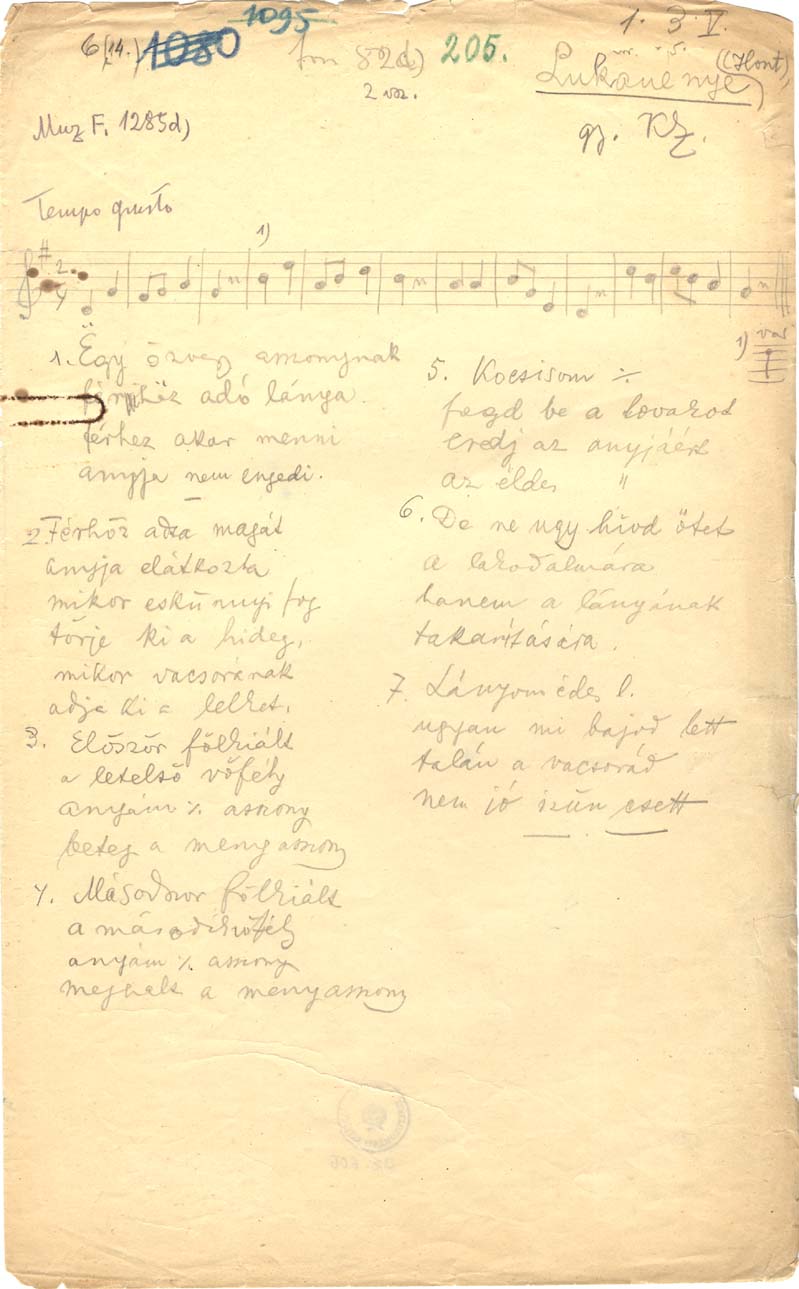 1095
6(14.) 1080
fon 82d)
205.
1. 3 V.
2 vsz.
Lukanénye
(Hont)
Muz F. 1285d)
gy. KZ.
Tempo giusto
1)
2
4
1) var
1. Egy özvegy asszonynak
férjhöz adó lánya.
férhez akar menni
anyja nem engedi.
2. Férhöz adsa magát
anyja elátkozta
mikor eskünnyi fog
törje ki a hideg,
mikor vacsorának
adja ki a lelket.
3. Először fölkiált
a letelső vőfély
anyám ./. asszony
beteg a menyasszony
4. Másodszor fölkiált
a második vőfély
anyám ./. asszony
meghalt a menyasszony
5. Kocsisom ./.
fogd be a lovakot
eredj az anyjáért
az éldes "
6. De ne ugy hívd ötet
a lakodalmára
hanem a lányának
takarítására.
7. Lányom édes l.
ugyan mi bajod lett
talán a vacsorád
nem jó izün esett